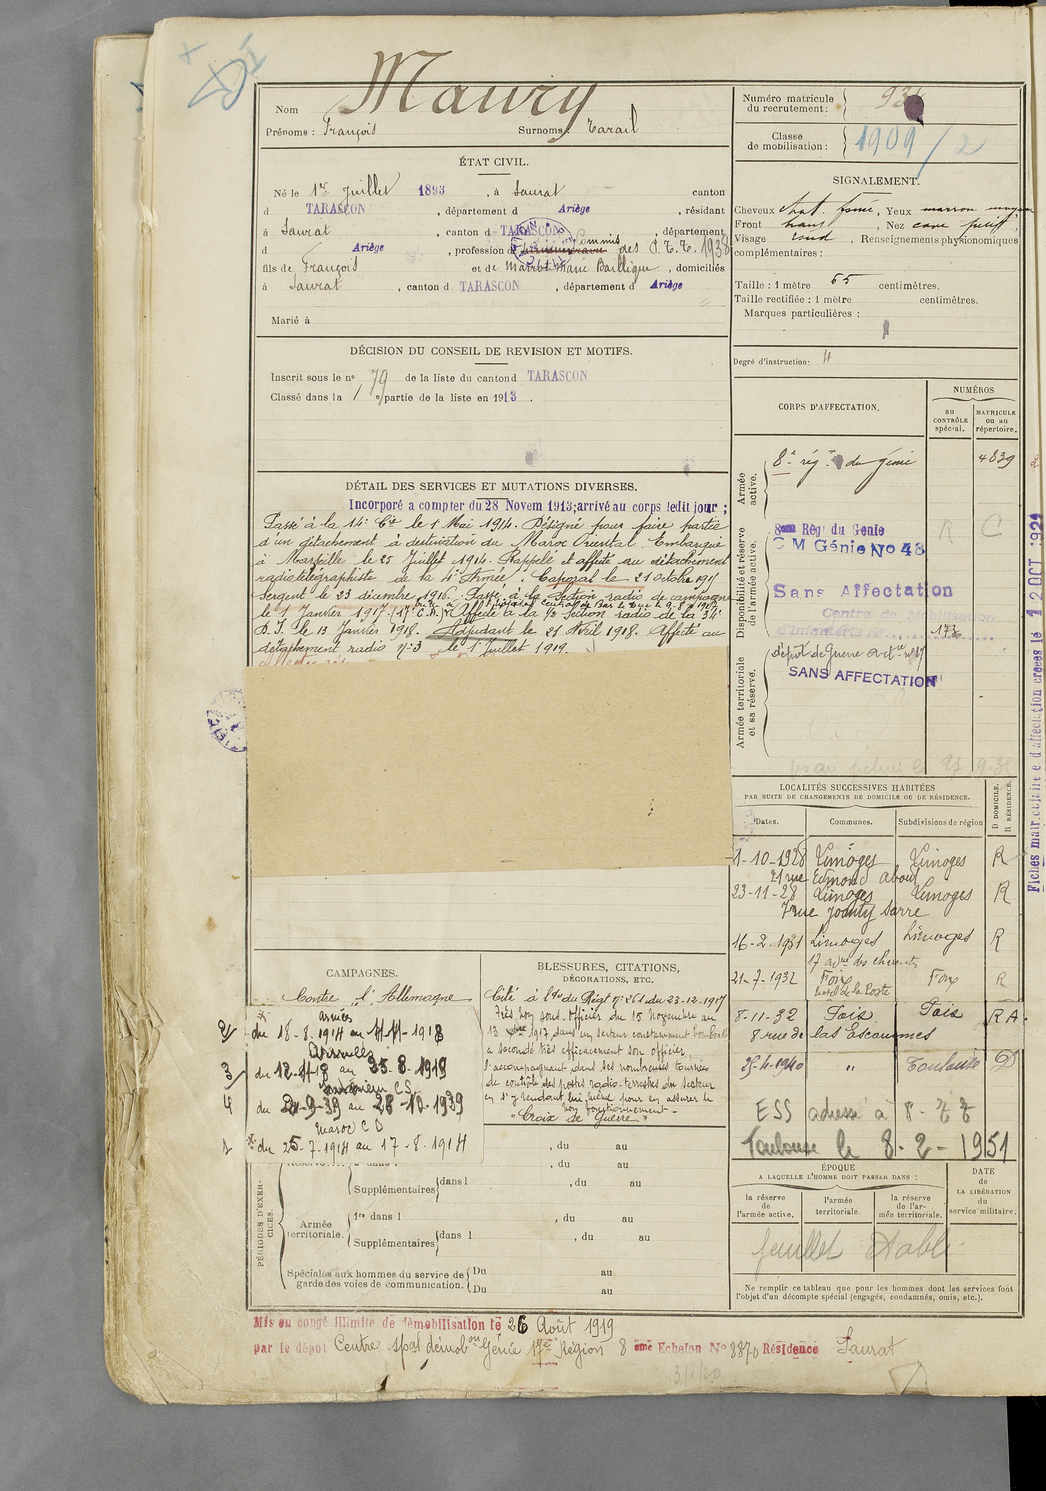 Maury
Nom
Prénoms : François Surnoms :
ÉTAT CIVIL.
Né le 1er Juillet 1893, à Saurat canton
d TARASCON, département d Ariège, résidant
à Saurat, canton d TARASCON, département
d Ariège, profession d Commis des P.T.T. 1938
fils de François et de Marrot Marie , domiciliés
à Saurat, canton d TARASCON, département d Ariège
Marié à
DÉCISION DU CONSEIL DE REVISION ET MOTIFS.
Inscrit sous le n° 79 de la liste du canton d TARASCON
Classé dans la 1 e partie de la liste en 1913.
DÉTAIL DES SERVICES ET MUTATIONS DIVERSES.
Incorporé a compter du 28 Novem 1913; arrivé au corps ledit jour ;
Passé à la 14e Cie le 1 Mai 1914. Désigné pour faire partie
d'un détachement à destination du Maroc Oriental. Embarqué
à Marseille le 25 Juillet 1914. Rappelé et affecté au détachement
radiotélégraphiste de la 4e Armée. Caporal le 21 Octobre 191
Sergent le 23 décembre 1916. Passé à la Section radio de campagne
le 1 Janvier 1917 Affecté à la Section radio de la 34e
D.I. le 13 Janvier 1918. Adjudant le 21 Avril 1918. Affecté au
détachement radio n°3 le 1 Juillet 1919.
CAMPAGNES.
Contre l'Allemagne
armées
2/ du 18-8-1914 au 11-11-1918
3/ du 12-11-18 au 25-8-1919
4 du 2-9-39 au 28-10-1939
Maroc
1 du 25-7-1914 au 17-8-1914
BLESSURES, CITATIONS,
DÉCORATIONS, ETC.
Cité à l'o/ du Régt n° 261 du 23-12-1917
Très bon sous-officier du 15 Novembre au
13 1917 dans un secteur constamment bombardé
a secondé très efficacement son officier,
l'accompagnant dans ses nombreuses tournées
de contrôle des postes radio-terrestres du secteur
en s'y rendant lui-même pour en assurer le
bon fonctionnement -
"Croix de Guerre"
, du au
, du au
PÉRIODES D'EXERCICES.
Supplémentaires dans l , du au
Armée territoriale.
1re dans l , du au
Supplémentaires dans l , du au
Spéciales aux hommes du service de garde des voies de communication.
Du au
Du au
Mis en congé illimité de démobilisation le 26 Août 1919
par le dépôt Centre spal démobon Génie 17e Région 8 eme Echelon N° 8870 Résidence Saurat
Numéro matricule
du recrutement :
Classe
de mobilisation : 1909/2
SIGNALEMENT.
Cheveux chat. foncé, Yeux marron moyen
Front haut, Nez petit
Visage rond, Renseignements physionomiques
complémentaires :
Taille : 1 mètre 65 centimètres.
Taille rectifiée : 1 mètre centimètres.
Marques particulières :
Degré d'instruction: 4
CORPS D'AFFECTATION.
NUMÉROS
au CONTRÔLE spécial.
MATRICULE ou au répertoire.
Armée active.
8e régt du génie 4839
Disponibilité et réserve de l'armée active.
8eme Rég du Genie
C M Génie No 48
R C
Sans Affectation
Centre de Mobilisation
d'Infanterie N° 173
Armée territoriale et sa réserve.
SANS AFFECTATION
LOCALITÉS SUCCESSIVES HABITÉES
PAR SUITE DE CHANGEMENTS DE DOMICILE OU DE RÉSIDENCE.
Dates. Communes. Subdivisions de région D DOMICILE. R RÉSIDENCE.
1-10-1928 Limoges Limoges R
21 rue Edmond about
23-11-28 Limoges Limoges R
7 rue
16-2-1931 Limoges Limoges R
21-7-1932 Foix Foix R
hôtel de la Poste
8-11-32 Foix Foix R A
8 rue de las Escoumes
25-4-1940 " Toulouse D
ESS adresse à
Toulouse le 8-2-1951
ÉPOQUE
A LAQUELLE L'HOMME DOIT PASSER DANS :
la réserve de l'armée active.
l'armée territoriale.
la réserve de l'armée territoriale.
DATE de LA LIBÉRATION du service militaire.
feuillet établi
Ne remplir ce tableau que pour les hommes dont les services font
l'objet d'un décompte spécial (engagés, condamnés, omis, etc.).
Fiches matriculaire et d'affectation créées le 12 OCT 1921